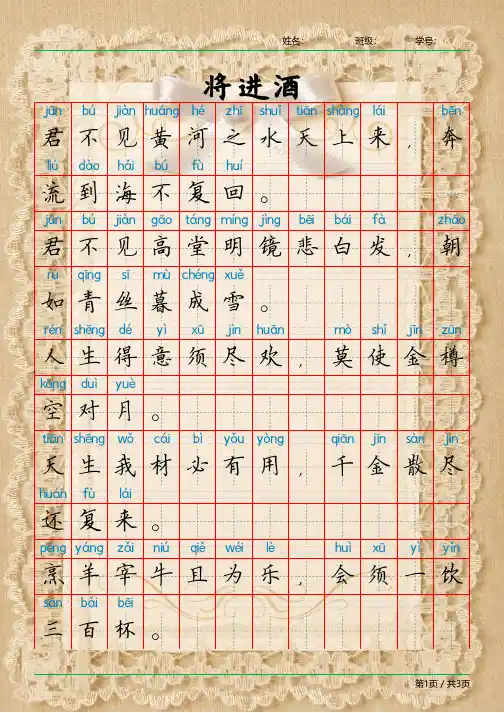 姓名： 班级： 学号：
将进酒
jūn bú jiàn huáng hé zhī shuǐ tiān shàng lái bēn
君不见黄河之水天上来，奔
liú dào hǎi bú fù huí
流到海不复回。
jūn bú jiàn gāo táng míng jìng bēi bái fà zhāo
君不见高堂明镜悲白发，朝
rú qīng sī mù chéng xuě
如青丝暮成雪。
rén shēng dé yì xū jìn huān mò shǐ jīn zūn
人生得意须尽欢，莫使金樽
kōng duì yuè
空对月。
tiān shēng wǒ cái bì yòu yòng qiān jīn sàn jìn
天生我材必有用，千金散尽
huán fù lái
还复来。
pēng yáng zǎi niú qiě wéi lè huì xū yì yǐn
烹羊宰牛且为乐，会须一饮
sān bǎi bēi
三百杯。
第1页 / 共3页